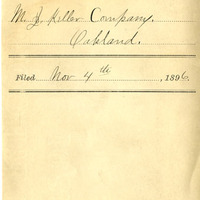 M. J. Keller Company.
Oakland.
Filed Nov 4th, 1896.